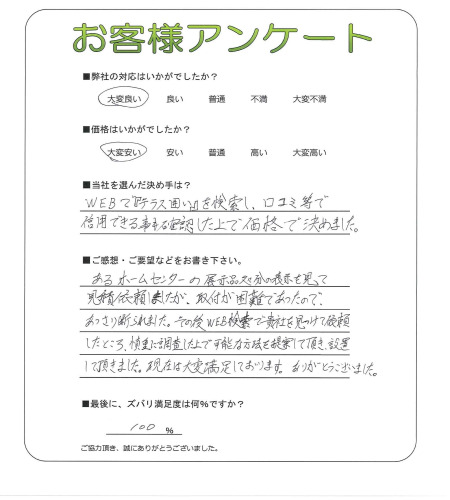 お客様アンケート
■弊社の対応はいかがでしたか？
大変良い 良い 普通 不満 大変不満
■価格はいかがでしたか？
大変安い 安い 普通 高い 大変高い
■当社を選んだ決め手は？
WEBで『テラス囲い』を検索し、口コミ等で
信用できる事を確認した上で価格で決めました。
■ご感想・ご要望などをお書き下さい。
あるホームセンターの展示品処分の表示を見て
見積依頼しましたが、取付が困難であったので、
あっさり断られました。その後WEB検索で貴社を見つけて依頼
したところ、慎重に調査した上で可能な方法を提案して頂き、設置
して頂きました。現在は大変満足しております。ありがとうございました。
■最後に、ズバリ満足度は何％ですか？
100 %
ご協力頂き、誠にありがとうございました。